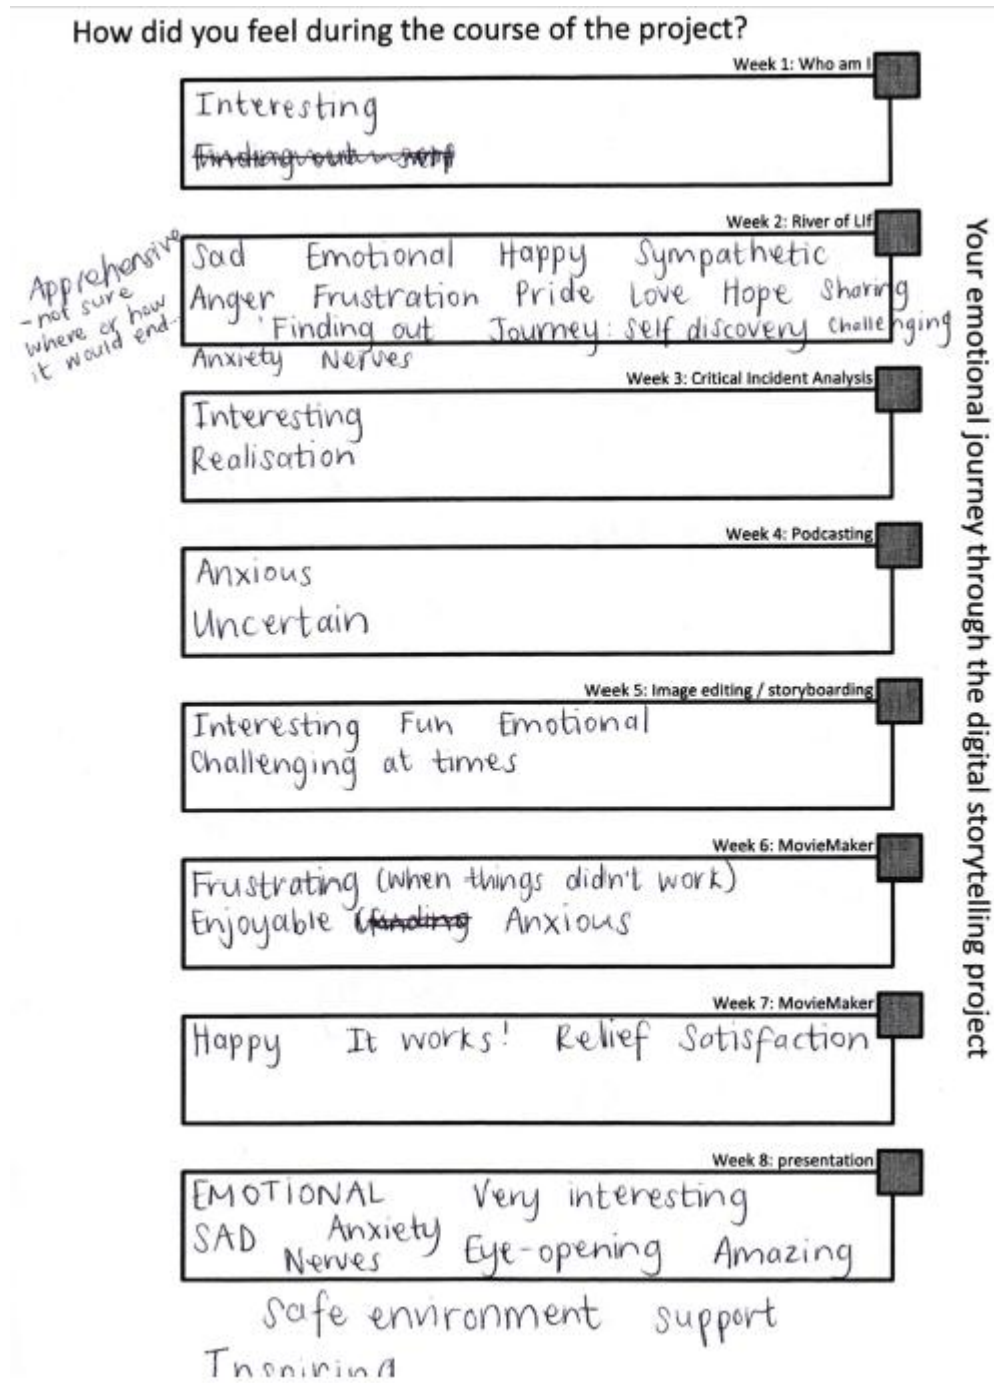 How did you feel during the course of the project?
Week 1: Who am I
Interesting
Week 2: River of LIf
Apprehensive
- not sure
where or how
it would end...
Sad Emotional Happy Sympathetic
Anger Frustration Pride Love Hope Sharing
Finding out Journey: self discovery Challenging
Anxiety Nerves
Week 3: Critical Incident Analysis
Interesting
Realisation
Week 4: Podcasting
Anxious
Uncertain
Week 5: Image editing / storyboarding
Interesting Fun Emotional
Challenging at times
Week 6: MovieMaker
Frustrating (when things didn't work)
Enjoyable (finding Anxious
Week 7: MovieMaker
Happy It works! Relief Satisfaction
Week 8: presentation
EMOTIONAL Very interesting
SAD Anxiety
Nerves Eye-opening Amazing
Safe environment support
Inspiring
Your emotional journey through the digital storytelling project